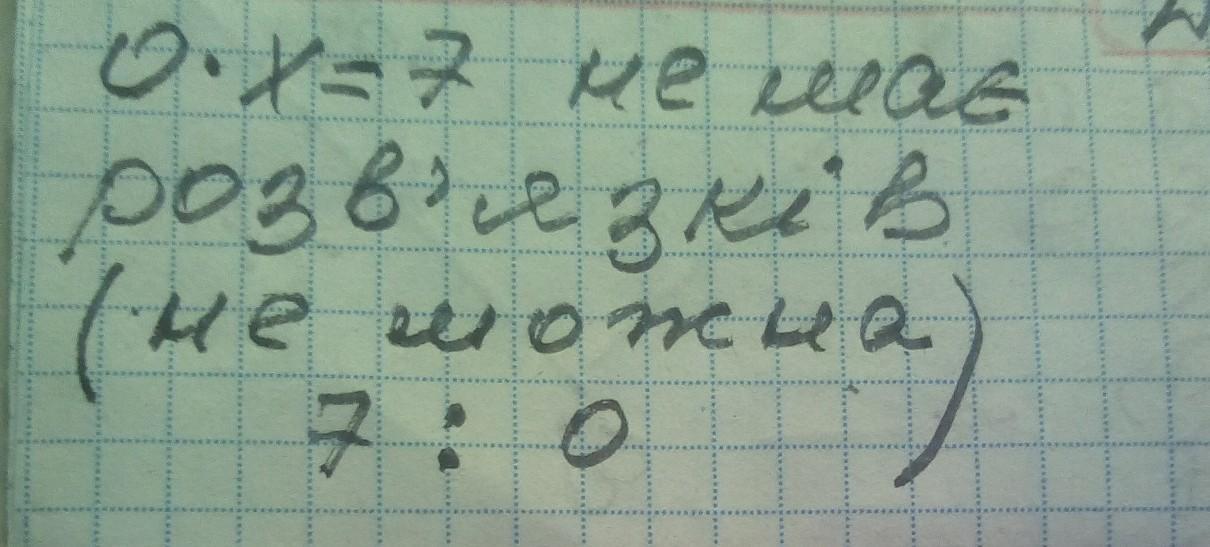 0·x=7 не має
розв'язків
(не можна)
7 : 0